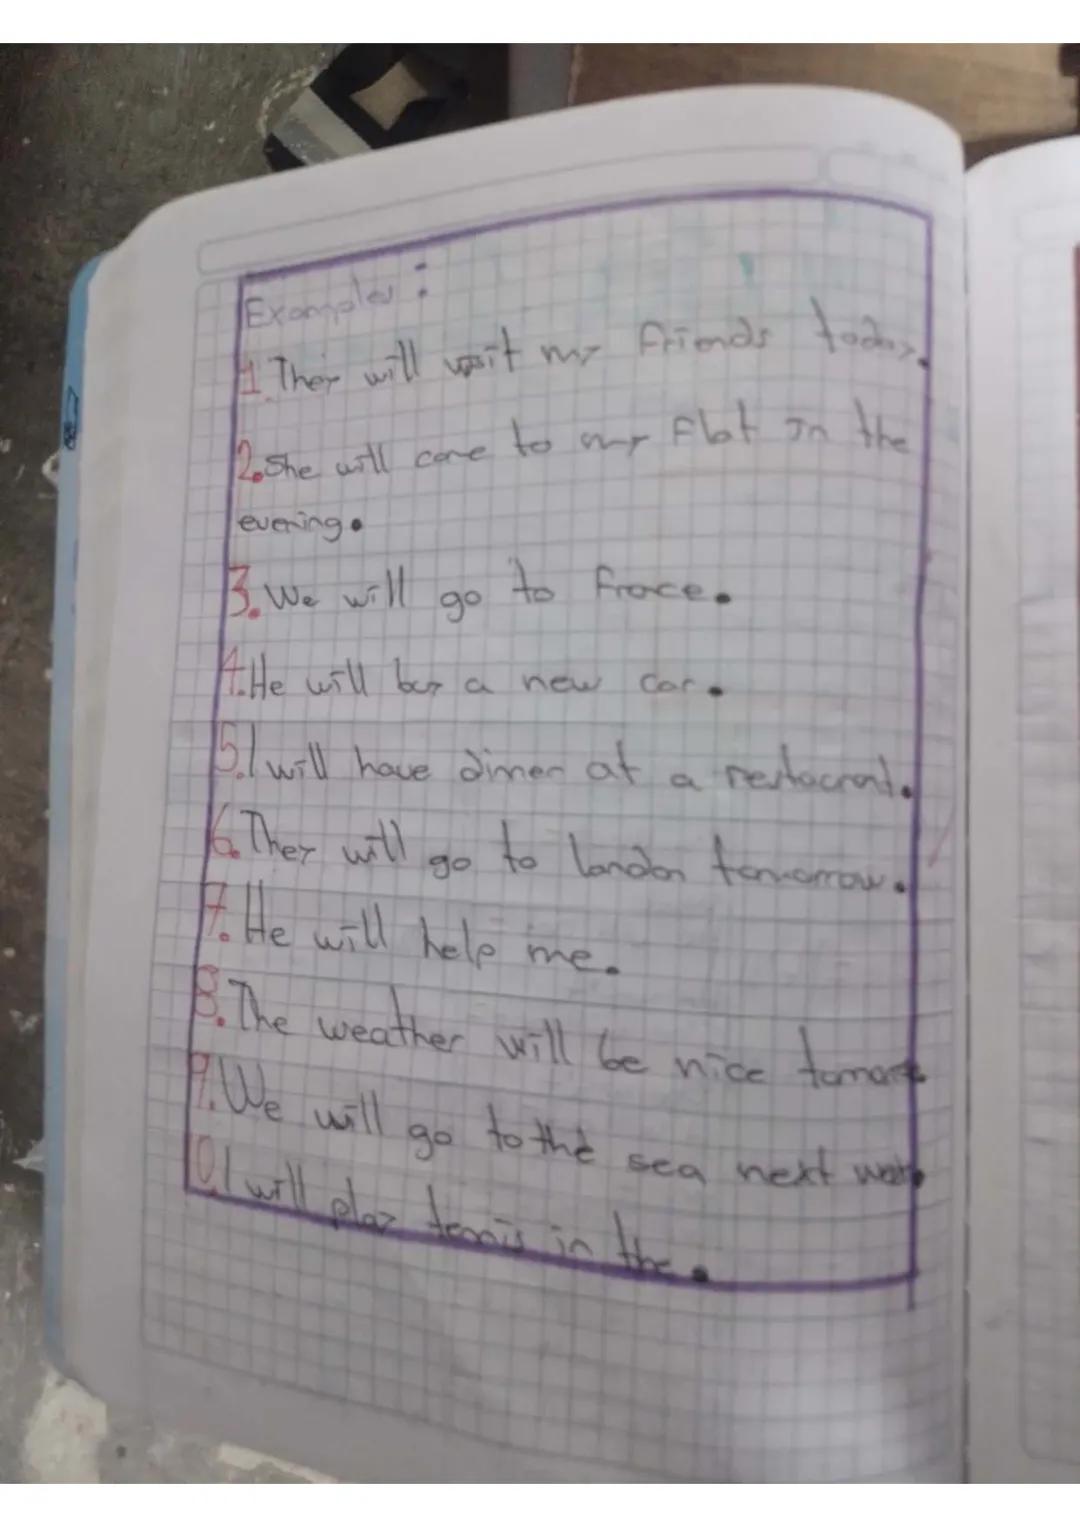 Examples :
1. They will vasit my friends today.
2. She will come to my flat In the
evening.
3. We will go to france.
4. He will buy a new car.
5. I will have dinner at a restaurant.
6. They will go to london tomorrow.
7. He will help me.
8. The weather will be nice
9. We will go to the sea next
10. I will play tennis in the.